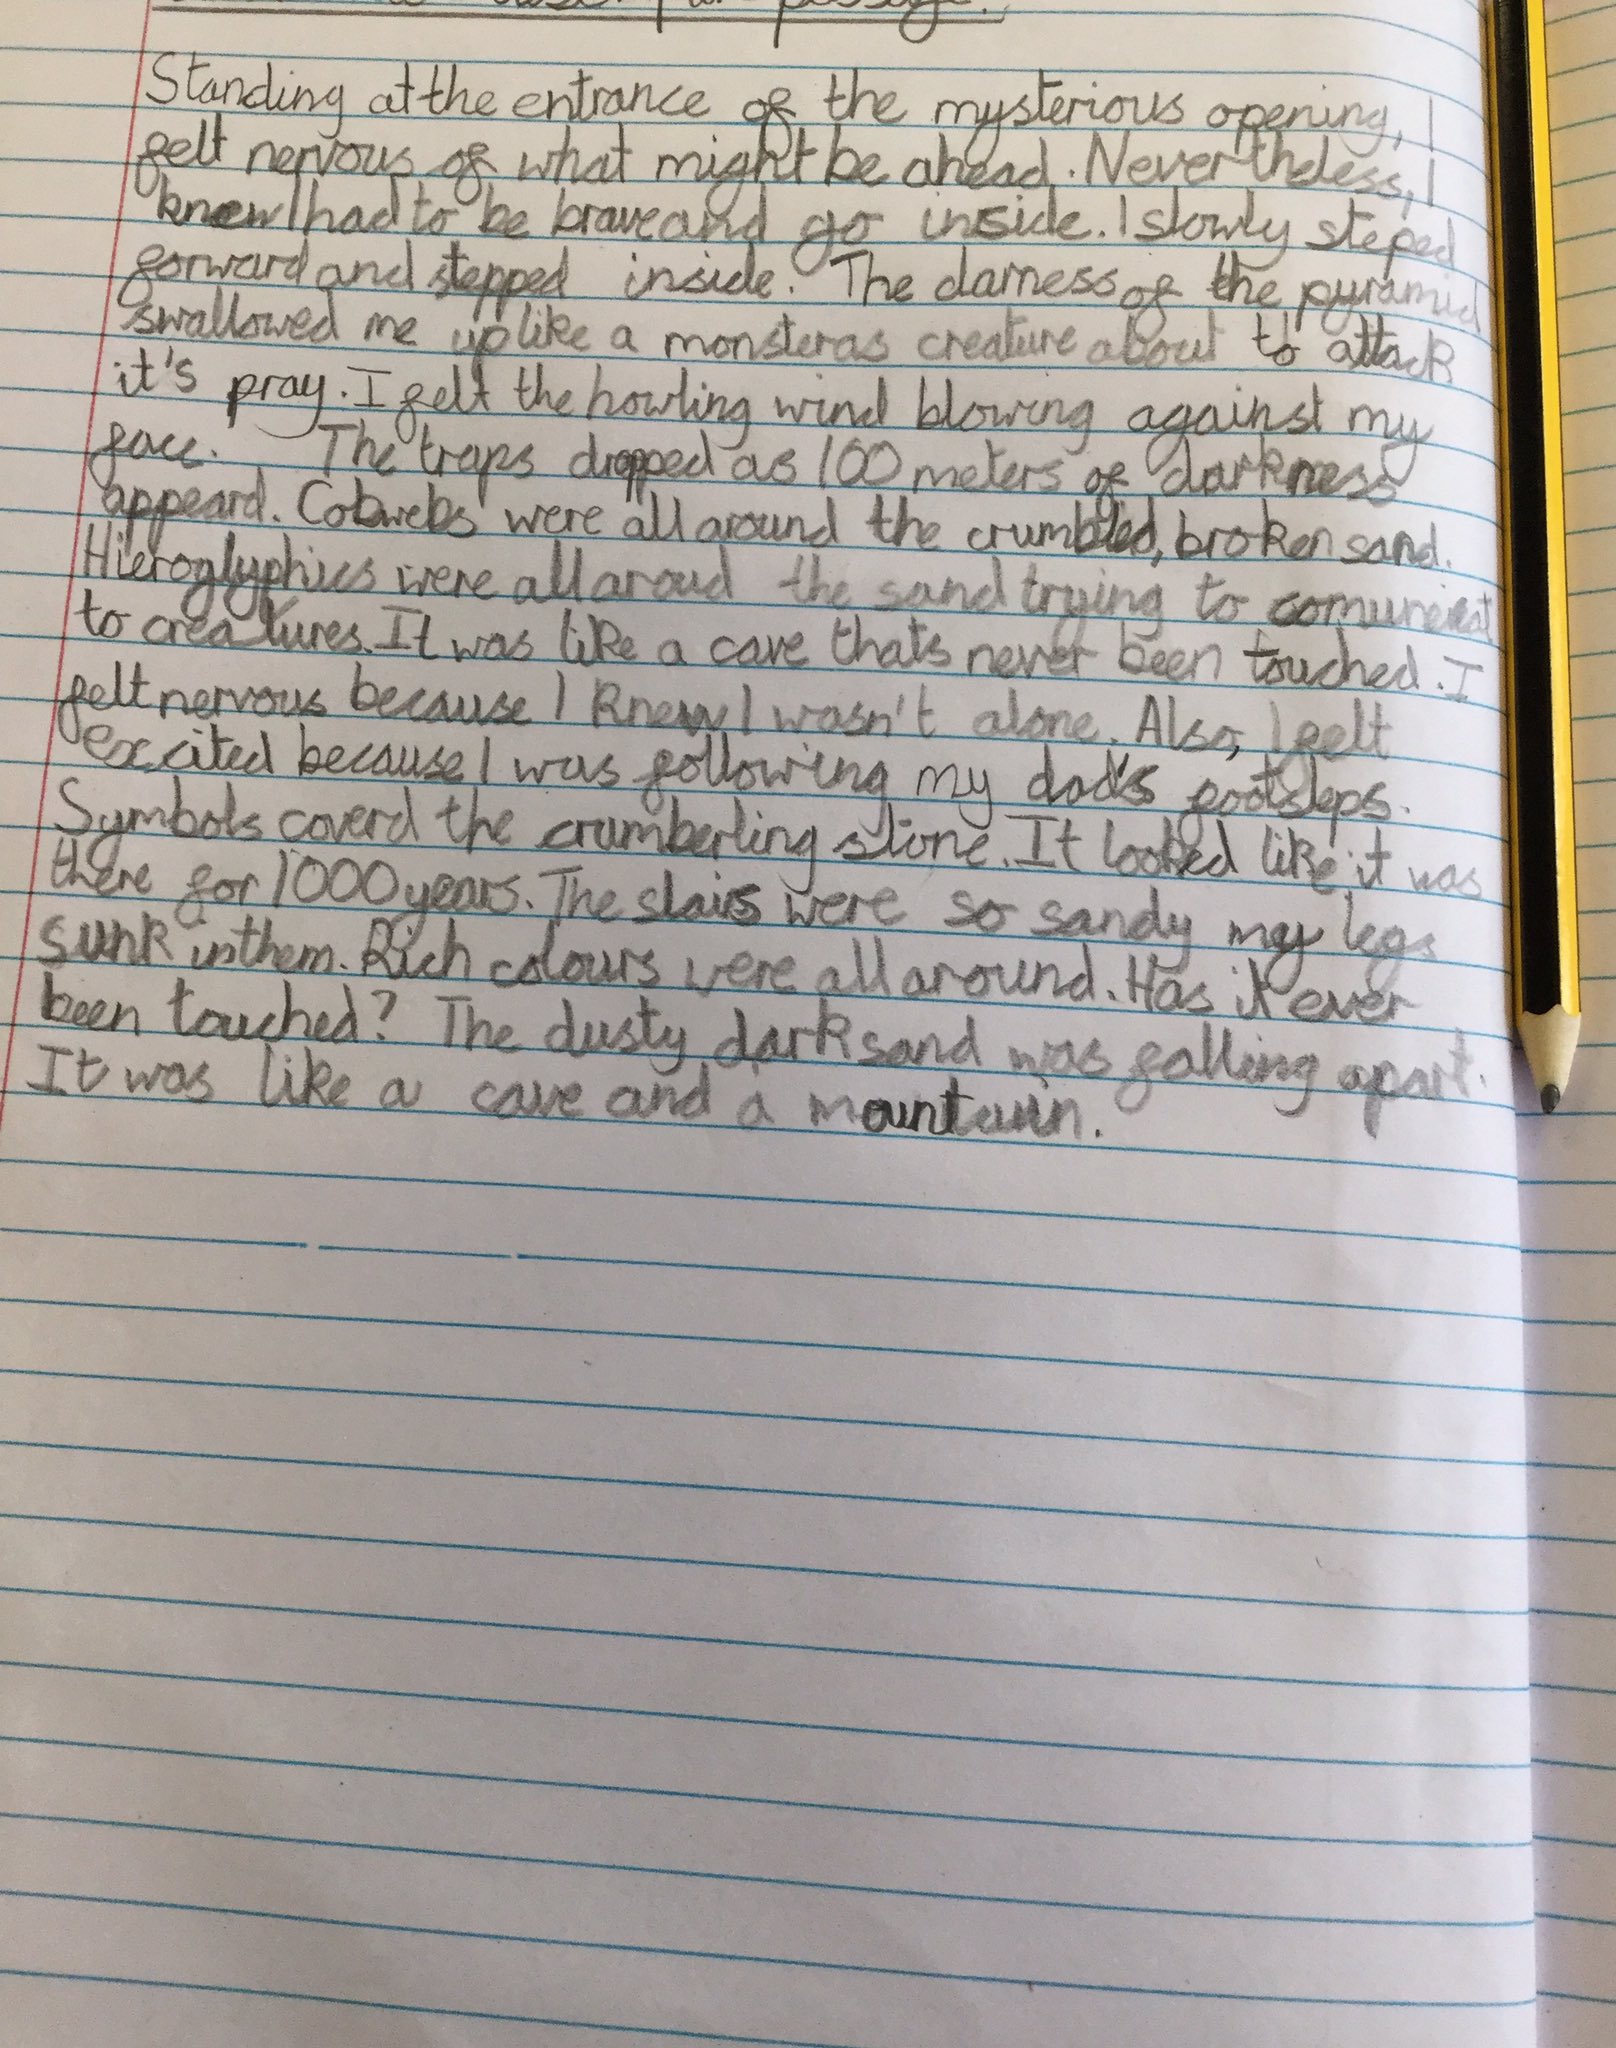 passage.
Standing at the entrance of the mysterious opening, I
felt nervous of what might be ahead. Nevertheless, I
knew I had to be brave and go inside. I slowly steped
forward and stepped inside. The darness of the pyramid
swallowed me up like a monsteras creature about to attack
it's pray. I felt the howling wind blowing against my
face. The traps dropped as 100 meters of darkness
appeard. Cobwebs were all around the crumbled, broken sand.
Hieroglyphics were all aroud the sand trying to comunicat
to creatures. It was like a cave thats never been touched. I
felt nervous because I knew I wasn't alone. Also, I felt
excited because I was following my dad's footsteps.
Symbols coverd the crumberling stone. It looked like it was
there for 1000 years. The stairs were so sandy my legs
sunk in them. Rich colours were all around. Has it ever
been touched? The dusty dark sand was falling apart.
It was like a cave and a mountain.